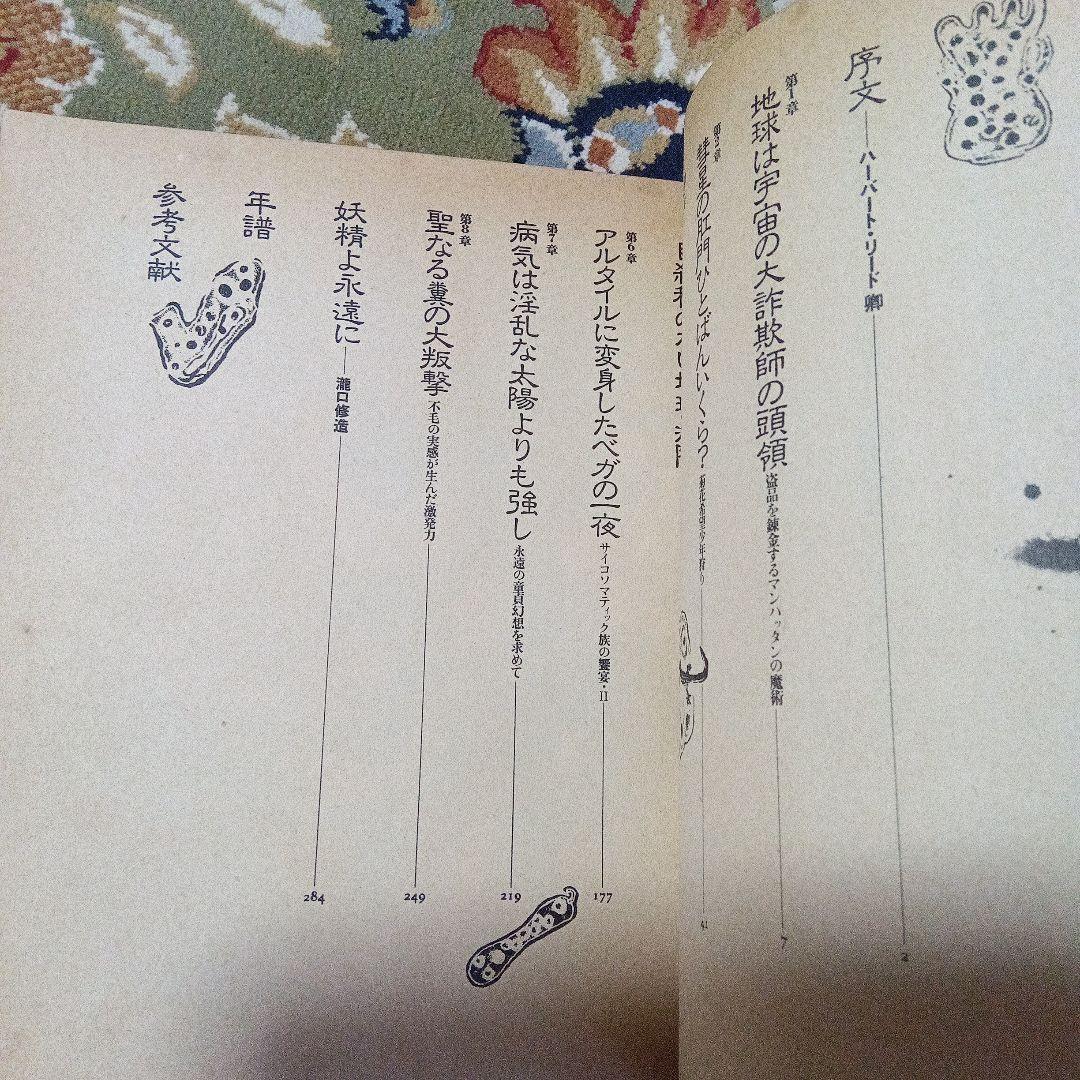 序文――ハーバート・リード卿 2
第1章
地球は宇宙の大詐欺師の頭領 盗品を錬金するマンハッタンの魔術 7
第2章
彗星の肛門ひとばんいくら?
第6章
アルタイルに変身したベガの一夜 サイコソマティック族の饗宴・II 177
第7章
病気は淫乱な太陽よりも強し 永遠の童貞幻想を求めて 219
第8章
聖なる糞の大叛撃 不毛の実感が生んだ激発力 249
妖精よ永遠に――瀧口修造 284
年譜
参考文献